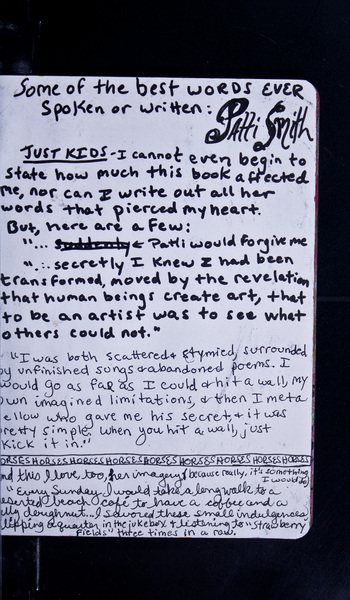 Some of the best WORDS EVER
Spoken or written: Patti Smith
JUST KIDS - I cannot even begin to
state how much this book affected
me, nor can I write out all her
words that pierced my heart.
But, here are a few:
"... Patti would forgive me
"... secretly I knew I had been
transformed, moved by the revelation
that human beings create art, that
to be an artist was to see what
others could not."
"I was both scattered & stymied, surrounded
by unfinished songs & abandoned poems. I
would go as far as I could & hit a wall, my
own imagined limitations, & then I met a
fellow who gave me his secret, & it was
pretty simple. When you hit a wall, just
kick it in."
HORSES HORSES HORSES HORSES HORSES HORSES HORSES HORSES
and this I love, too, her imagery (because really, it's something I would do)
"Every Sunday I would take a long walk to a
deserted beach café to have a coffee and a
jelly doughnut... I savored these small indulgences,
slipping a quarter in the jukebox & listening to "Strawberry
Fields" three times in a row.